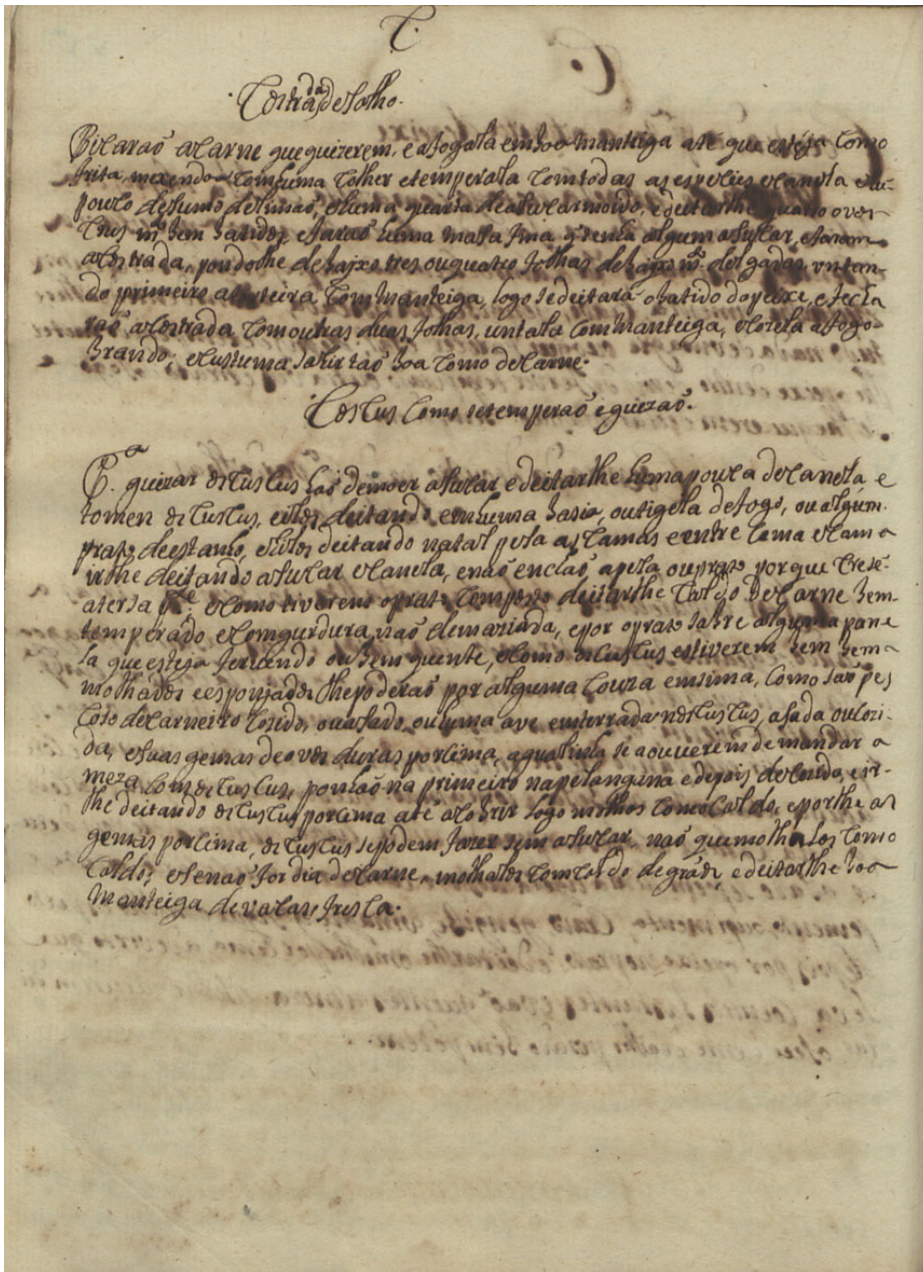 C.
Costrada de folho.
Picaraõ a carne que quizerem, e afogala em boa manteiga até que esteja como
frita, mexendo-a com huma colher e temperala com todas as especies e canela e hũ
pouco de sumo de limaõ, e huma quarta de asucar moido, e deitarlhe quatro ovos
 m.to bem batidos, e faraõ huma masa fina q̃ tenha algum asucar, e faram
a costrada, pondolhe debaixo tres ou quatro folhas de baixo m.to delgadas, untan-
do primeiro a torteira com manteiga, logo se deitará o batido do peixe, e fecha
raõ a costrada com outras duas folhas, untala com manteiga, e cozela a fogo
brando; e custuma sahir taõ boa como de carne.
Cuscus como se temperaõ e guizaõ.
P.a guizar os cuscus haõ de moer asucar e deitarlhe huma pouca de canela e
tomen os cuscus, e ilos deitando em huma basia, ou tigela de fogo, ou algum
prato de estanho, e hilos deitando na tal pela as camas e entre cama e cama
irlhe deitando asucar e canela, e naõ enchaõ a pela ou prato porque crese
a tersa p.te e como tiverem o prato composto deitarlhe caldo de carne bem
temperado e com gurdura, naõ demaziada, e por o prato sobre alguma pane
la que esteja fervendo ou bem quente, e como os cuscus estiverem bem
molhados e esponjados lhe poderaõ por alguma couza em sima, como saõ pes
coso de carneiro cozido, ou asado, ou huma ave enterrada nos cuscus, asada ou cozi-
da, e suas gemas de ovos duras por cima, a qual se a ouverem de mandar a
meza com os cuscus, ponhaõ na primeiro na palangana e depois de cozida, e ir-
lhe deitando os cuscus por cima até a cobrir logo molhos com o caldo, e porlhe as
gemas por cima, os cuscus se podem fazer sem asucar, naõ que molhalos com o
caldo; e se naõ for dia de carne, molhalos com caldo de graõs, e deitarlhe boa
Manteiga de vacas, fresca.